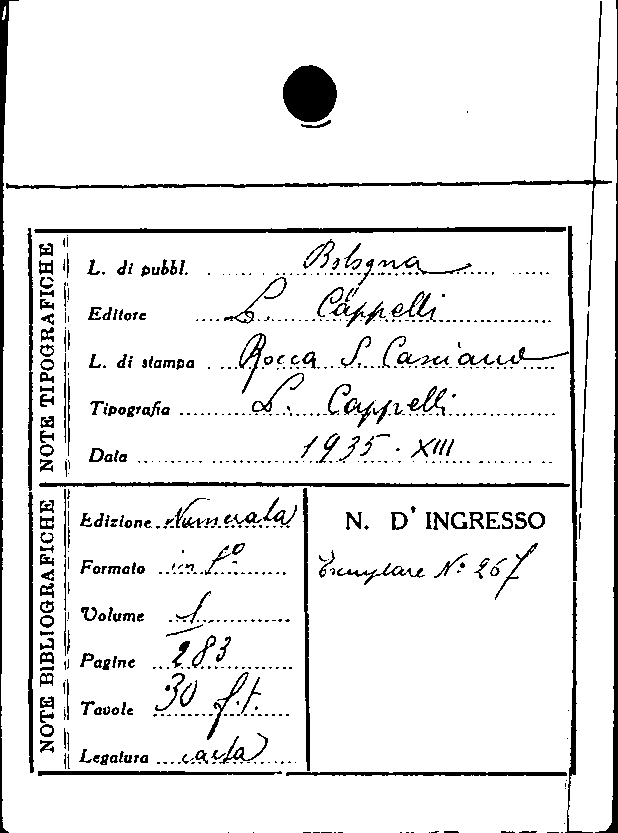 NOTE TIPOGRAFICHE
L. di pubbl. Bologna
Editore L. Cappelli
L. di stampa Rocca S. Casciano
Tipografia L. Cappelli
Data 1935 · XIII
NOTE BIBLIOGRAFICHE
Edizione Numerata
Formato in 8º
Volume 1
Pagine 283
Tavole 30 f.t.
Legatura carta
N. D' INGRESSO
Esemplare Nº 267